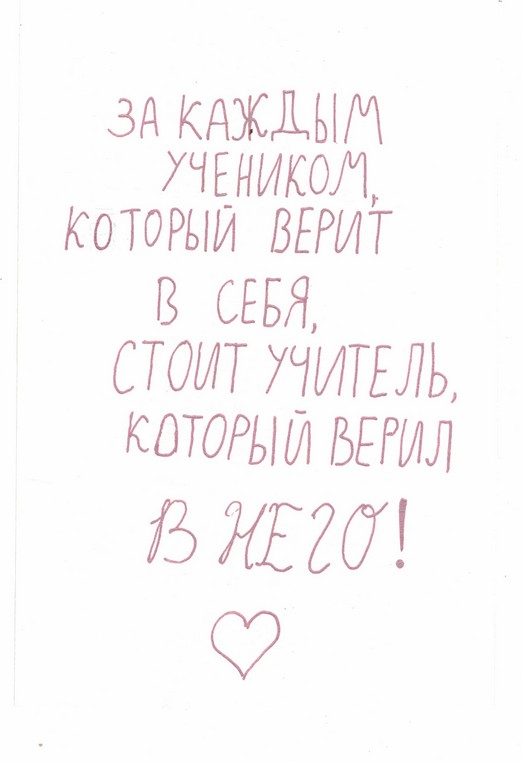 ЗА КАЖДЫМ
УЧЕНИКОМ,
КОТОРЫЙ ВЕРИТ
В СЕБЯ,
СТОИТ УЧИТЕЛЬ,
КОТОРЫЙ ВЕРИЛ
В НЕГО!